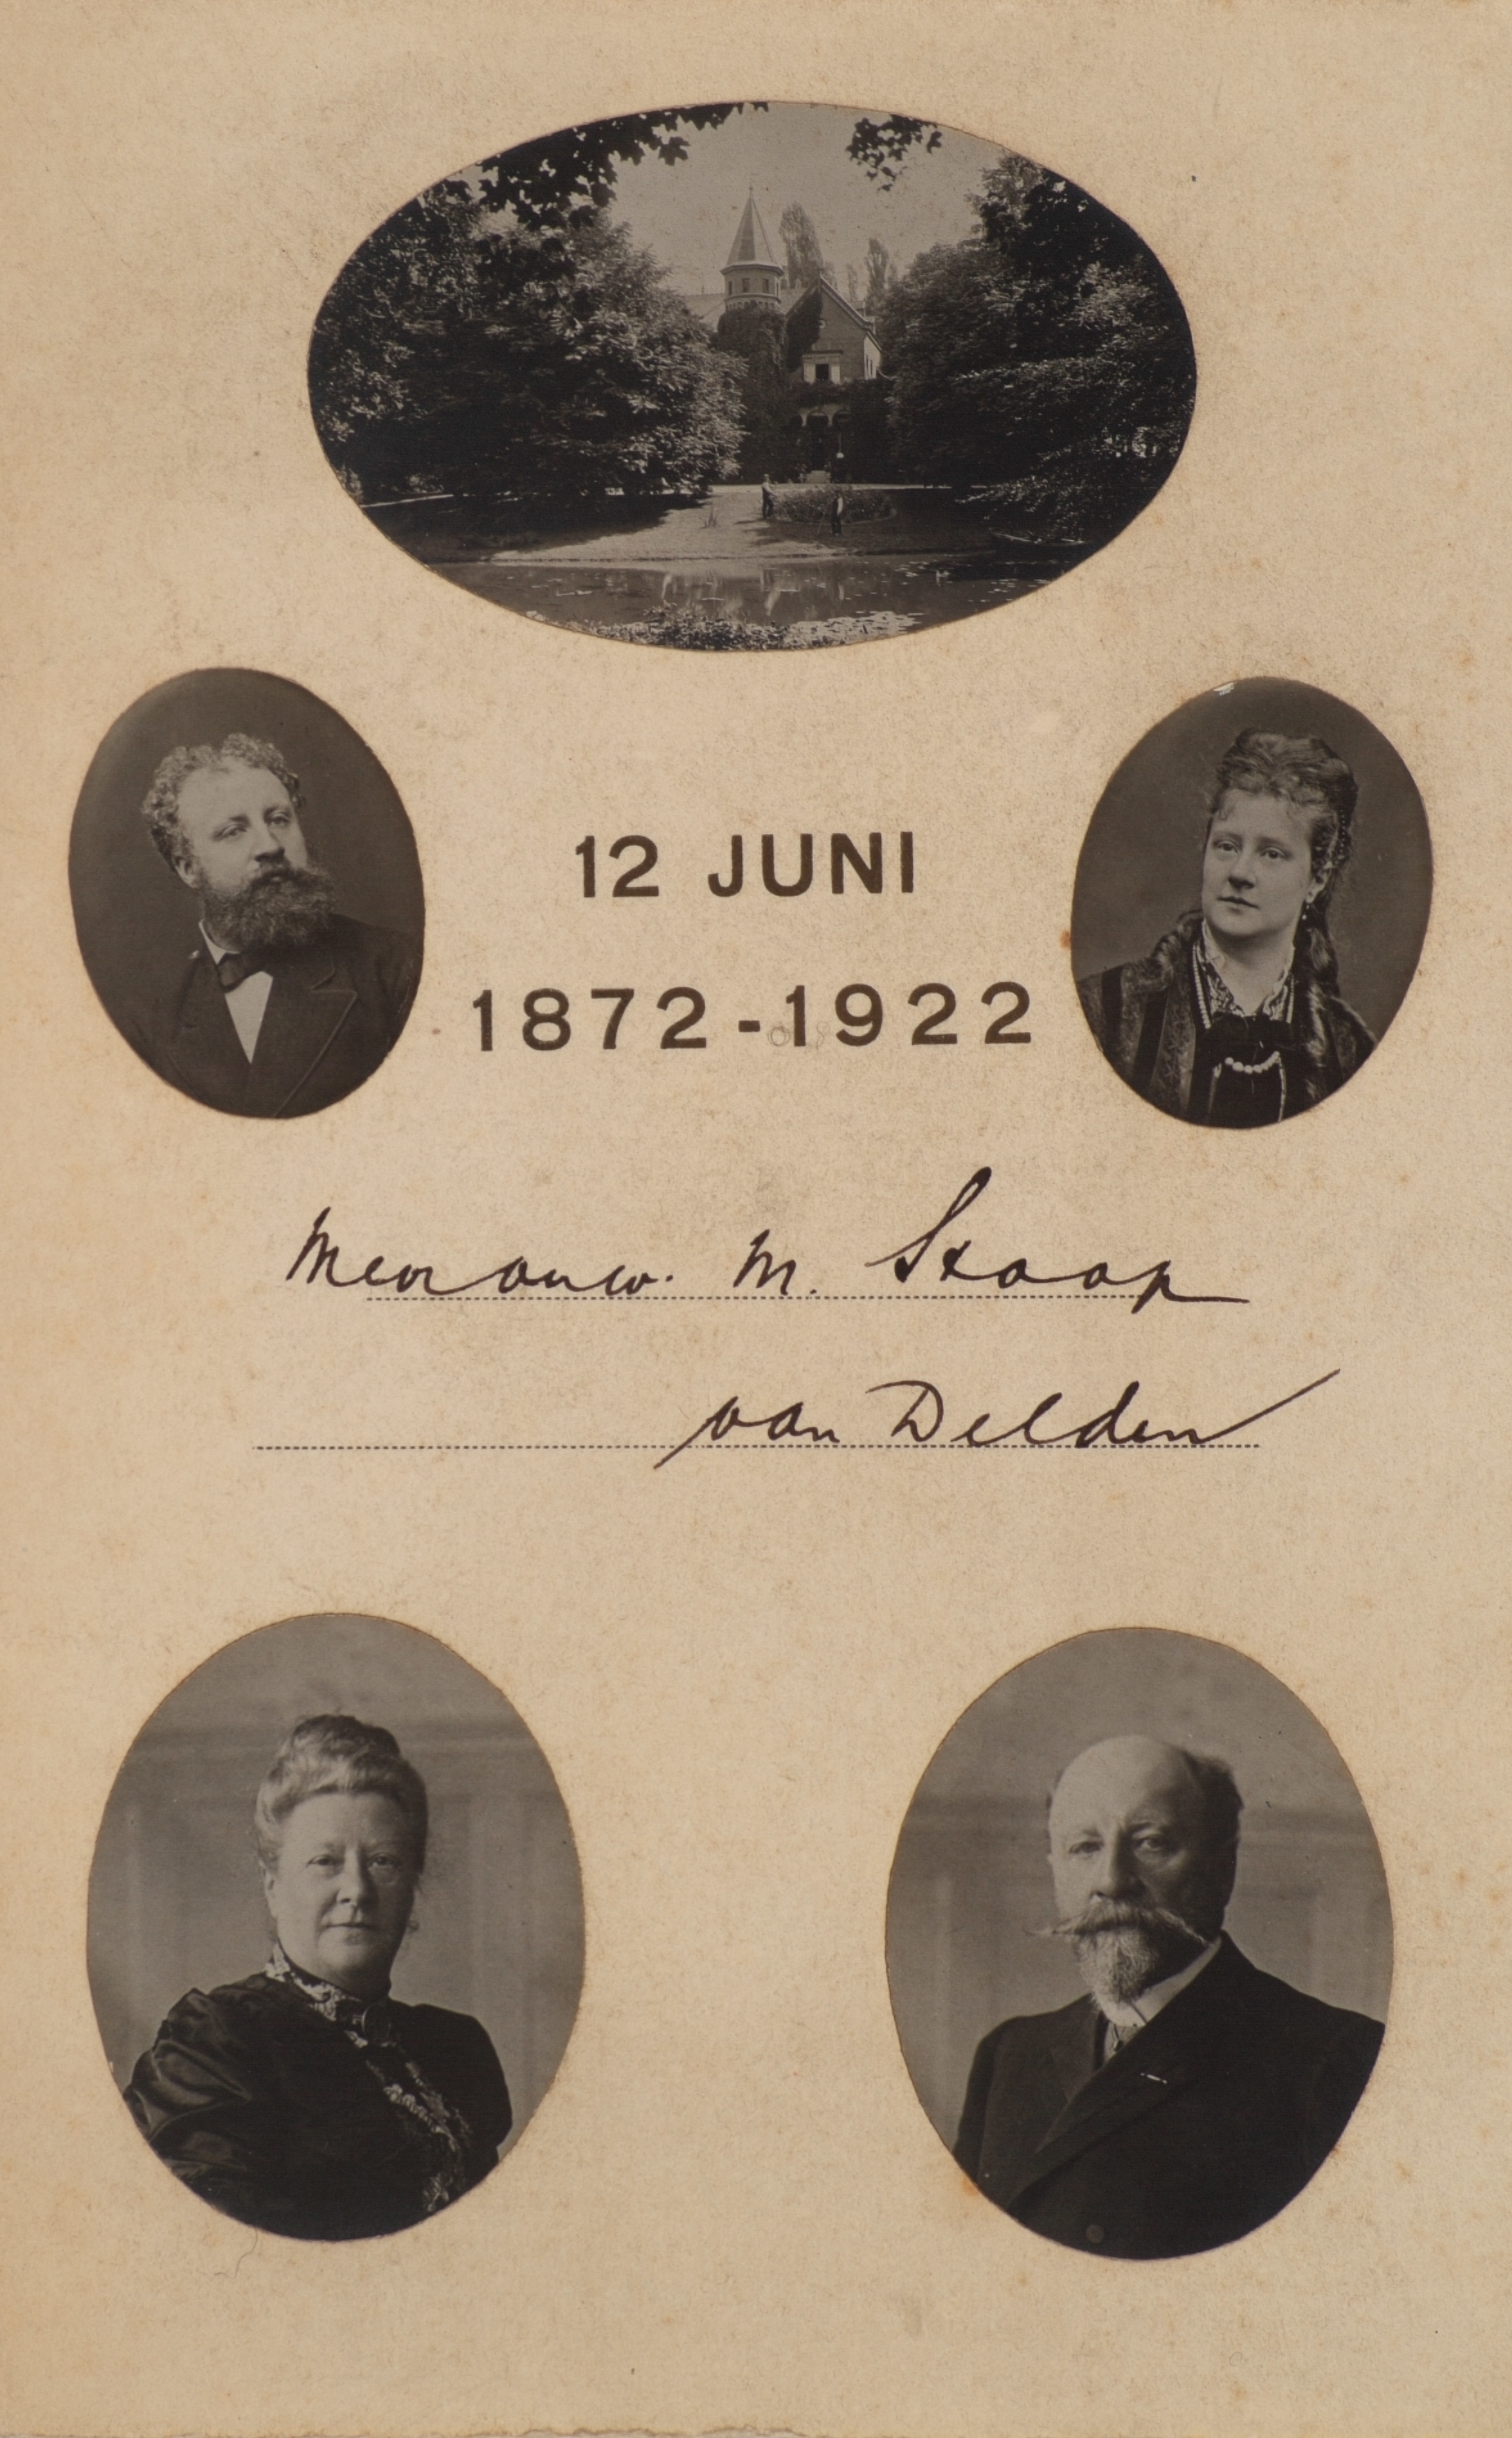 12 JUNI
1872-1922
Mevrouw. M. Stoop
van Delden